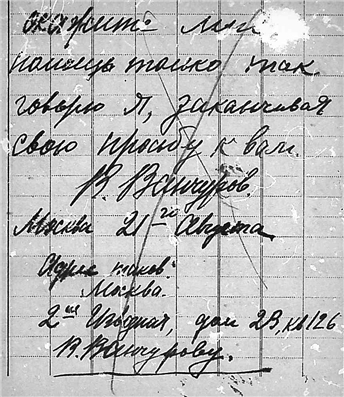 окажите мне
помощь только так
говорю я, заканчивая
свою просьбу к вам.
В. Ванчуров.
Москва 21го Августа
Адрес таков:
Москва.
2ая Ягодная, дом 23, кв 126
В. Ванчурову.